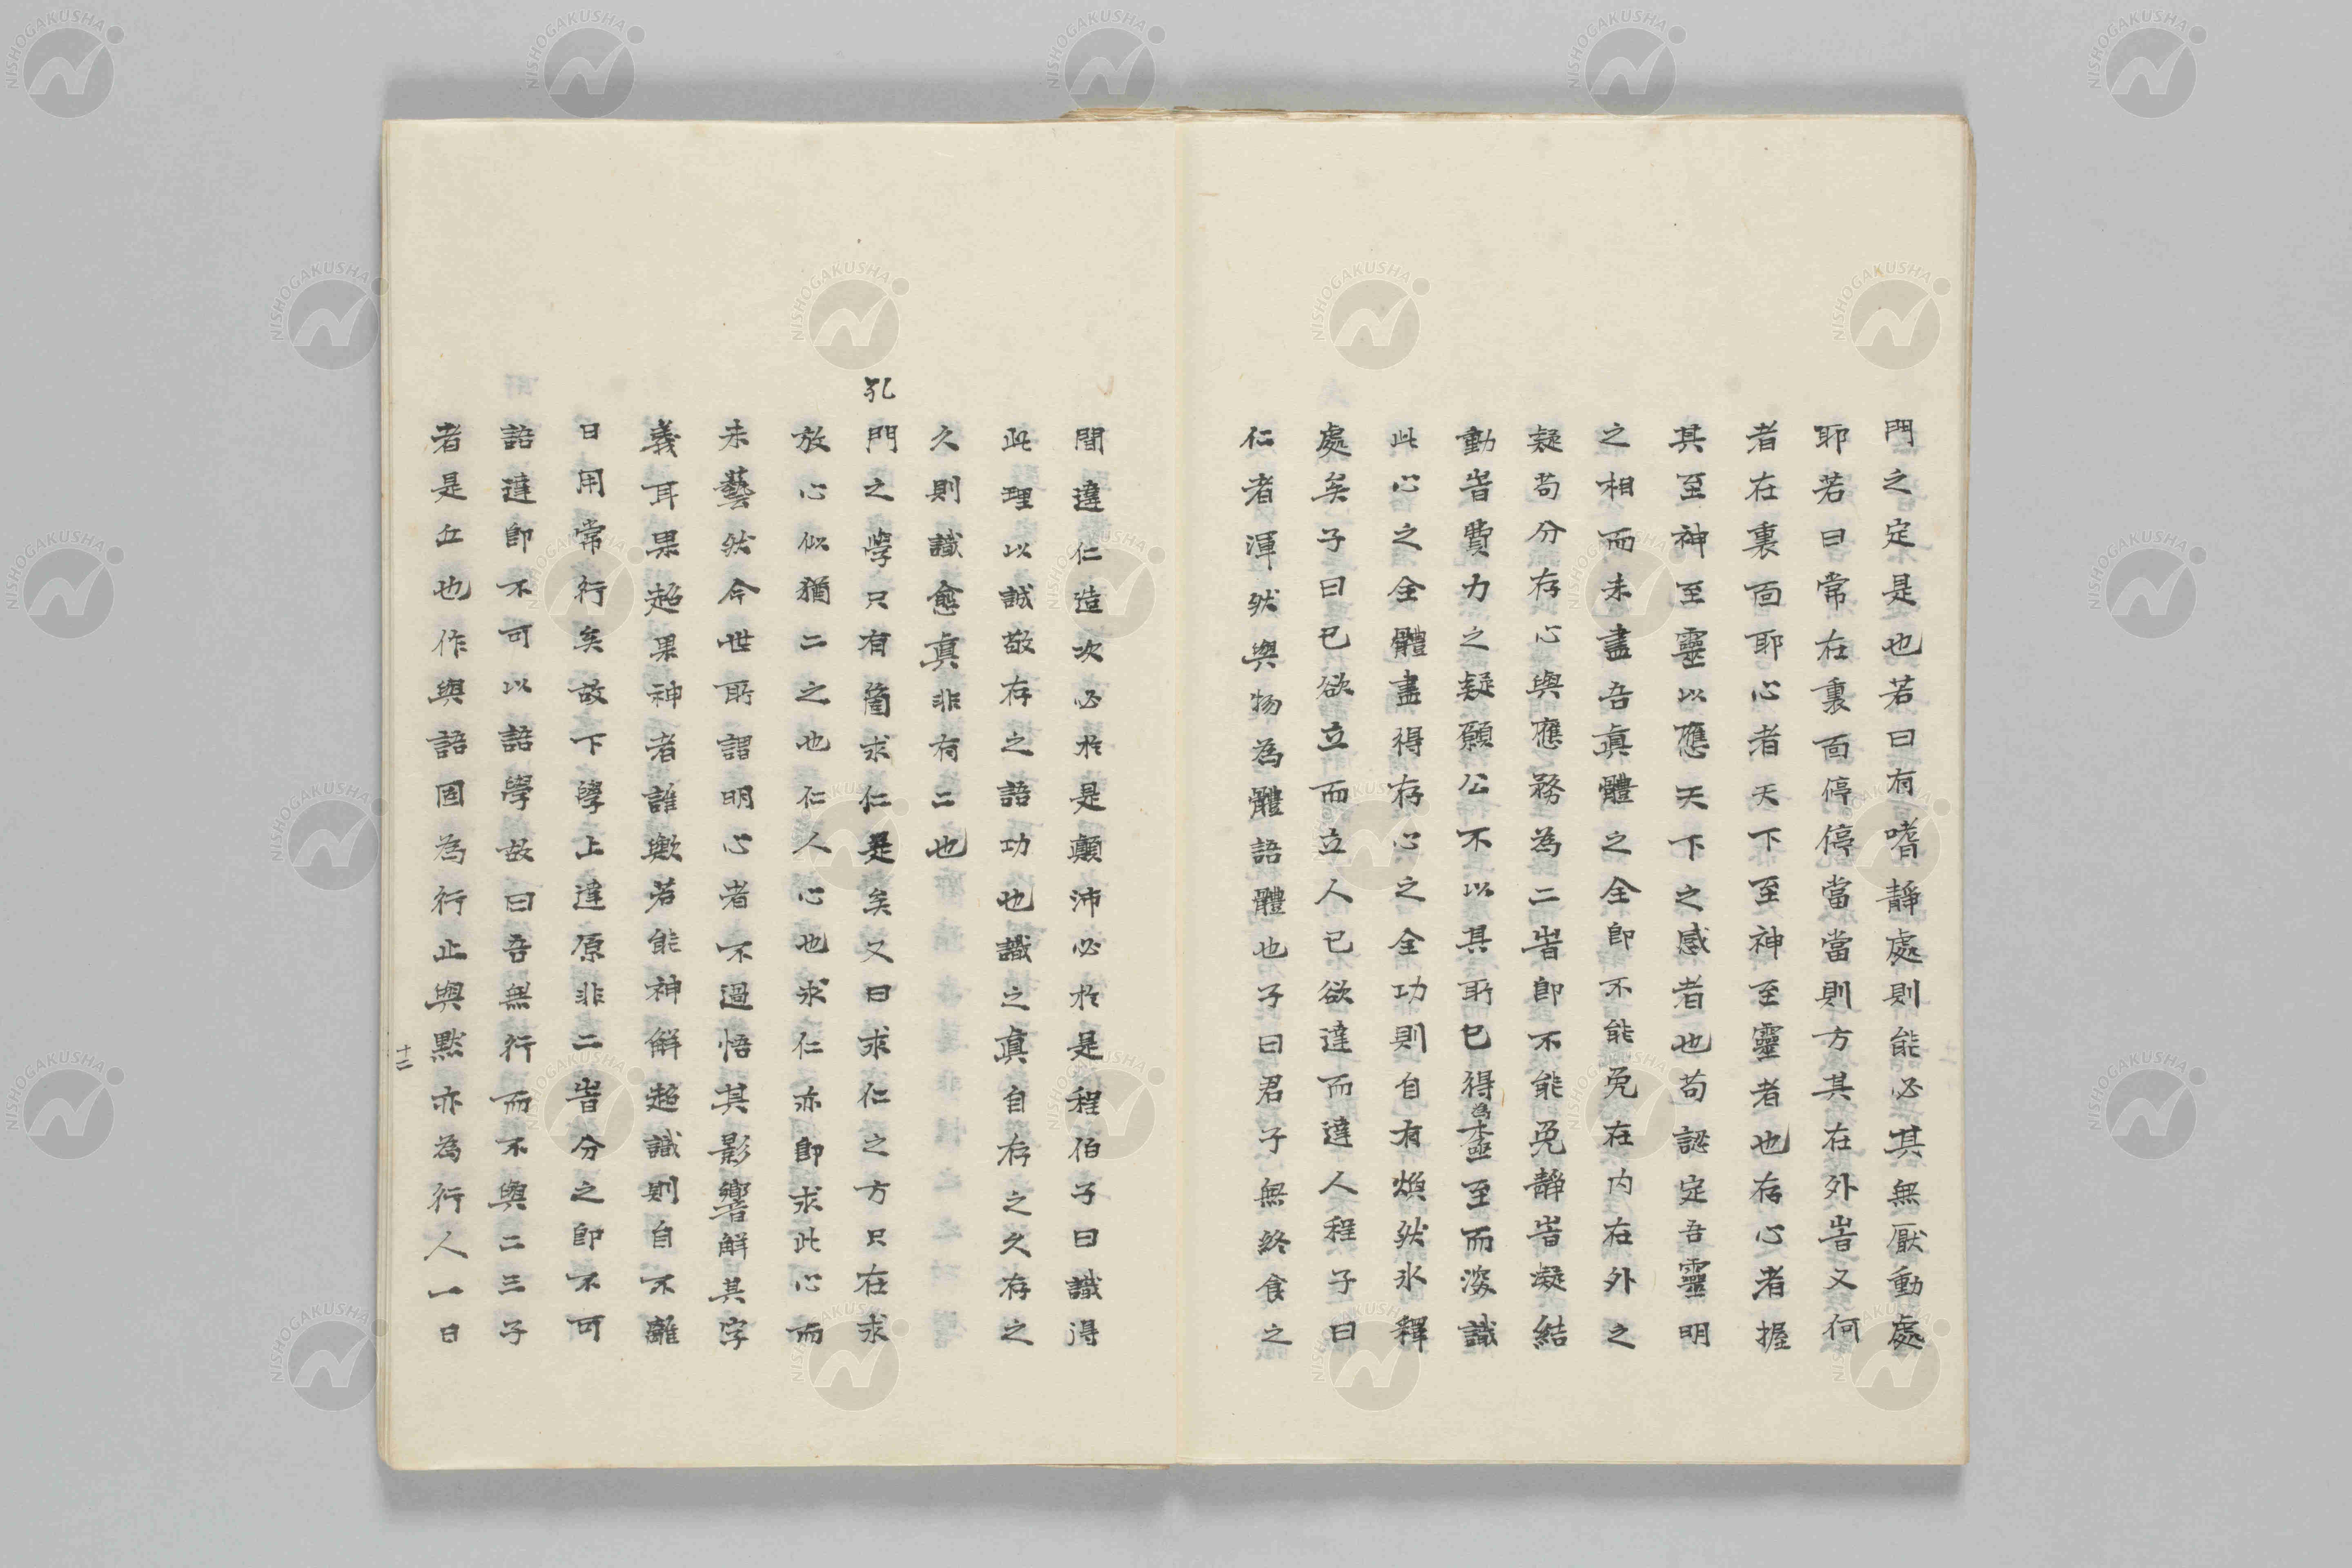 門之定是也若曰有嗜靜處則能必其無厭動處
耶若曰常在裏面停停當當則方其在外峕又何
者在裏面耶心者天下至神至靈者也存心者握
其至神至靈以應天下之感者也苟認定吾靈明
之相而未盡吾眞體之全即不能免在内在外之
疑苟分存心與應務為二峕即不能免靜峕凝結
動峕費力之疑願公不以其所已得為極至而深識
此心之全體盡得存心之全功則自有煥然氷釋
處矣子曰已欲立而立人已欲達而達人程子曰
仁者渾然與物為體語體也子曰君子無終食之
間違仁造次必於是顛沛必於是程伯子曰識得
此理以誠敬存之語功也識之眞自存之久存之
久則識愈眞非有二也
孔門之學只有箇求仁是矣又曰求仁之方只在求
放心似猶二之也仁人心也求仁亦即求此心而
未藝然今世所謂明心者不過悟其影響解其字
義耳果超果神者誰歟若能神解超識則自不離
日用常行矣故下學上達原非二峕分之即不可
語達即不可以語學故曰吾無行而不與二三子
者是丘也作與語固為行止與默亦為行人一日
十二
NISHOGAKUSHA